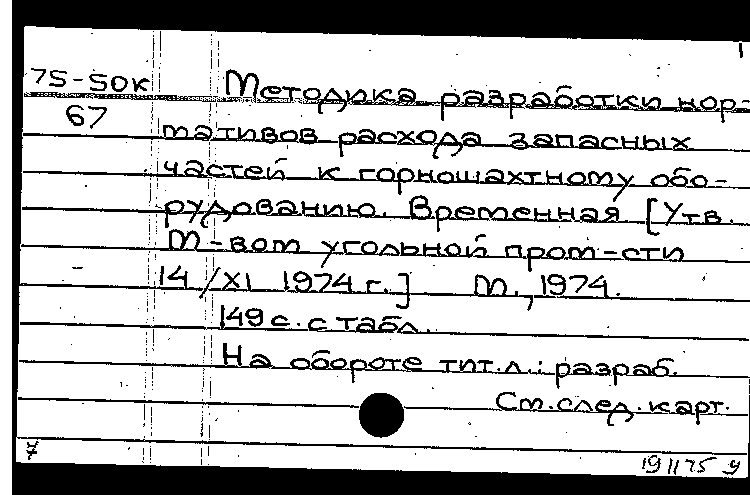 1
75-50к Методика разработки нор-
67 мативов расхода запасных
частей к горношахтному обо-
рудованию. Временная [Утв.
М-вом угольной пром-сти
14/XI 1974 г.] М., 1974.
149 с. с табл.
На обороте тит.л.: разраб.
См. след. карт.
191175 у